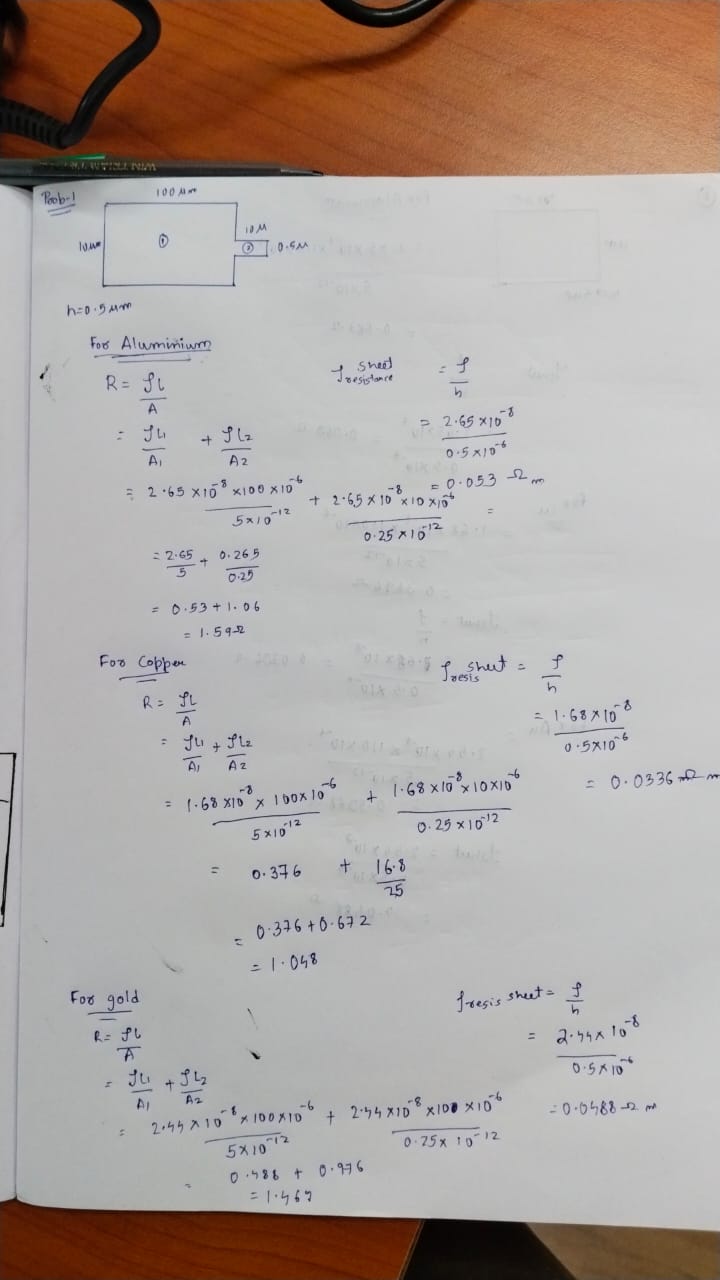 Prob-1
100 μm
10μm
①
10 μ
②
0.5μ
h=0.5 μm
For Aluminium
R = ρL/A
= ρL1/A1 + ρL2/A2
= 2.65 × 10^-8 × 100 × 10^-6 / 5×10^-12 + 2.65 × 10^-8 × 10 × 10^-6 / 0.25 × 10^-12
= 2.65/5 + 0.265/0.25
= 0.53 + 1.06
= 1.59Ω
ρ sheet resistance = ρ/h
= 2.65 ×10^-8 / 0.5×10^-6
= 0.053 Ω m
=
For Copper
R = ρL/A
= ρL1/A1 + ρL2/A2
= 1.68 ×10^-8 × 100×10^-6 / 5×10^-12 + 1.68 × 10^-8 × 10×10^-6 / 0.25 × 10^-12
= 0.376 + 16.8/25
= 0.376 + 0.672
= 1.048
ρresis sheet = ρ/h
= 1.68 × 10^-8 / 0.5×10^-6
= 0.0336 Ω m
For gold
R = ρL/A
= ρL1/A1 + ρL2/A2
= 2.44 × 10^-8 × 100×10^-6 / 5×10^-12 + 2.44 ×10^-8 ×100 ×10^-6 / 0.25× 10^-12
= 0.488 + 0.976
= 1.467
ρresis sheet = ρ/h
= 2.44× 10^-8 / 0.5×10^-6
= 0.0488 Ω m